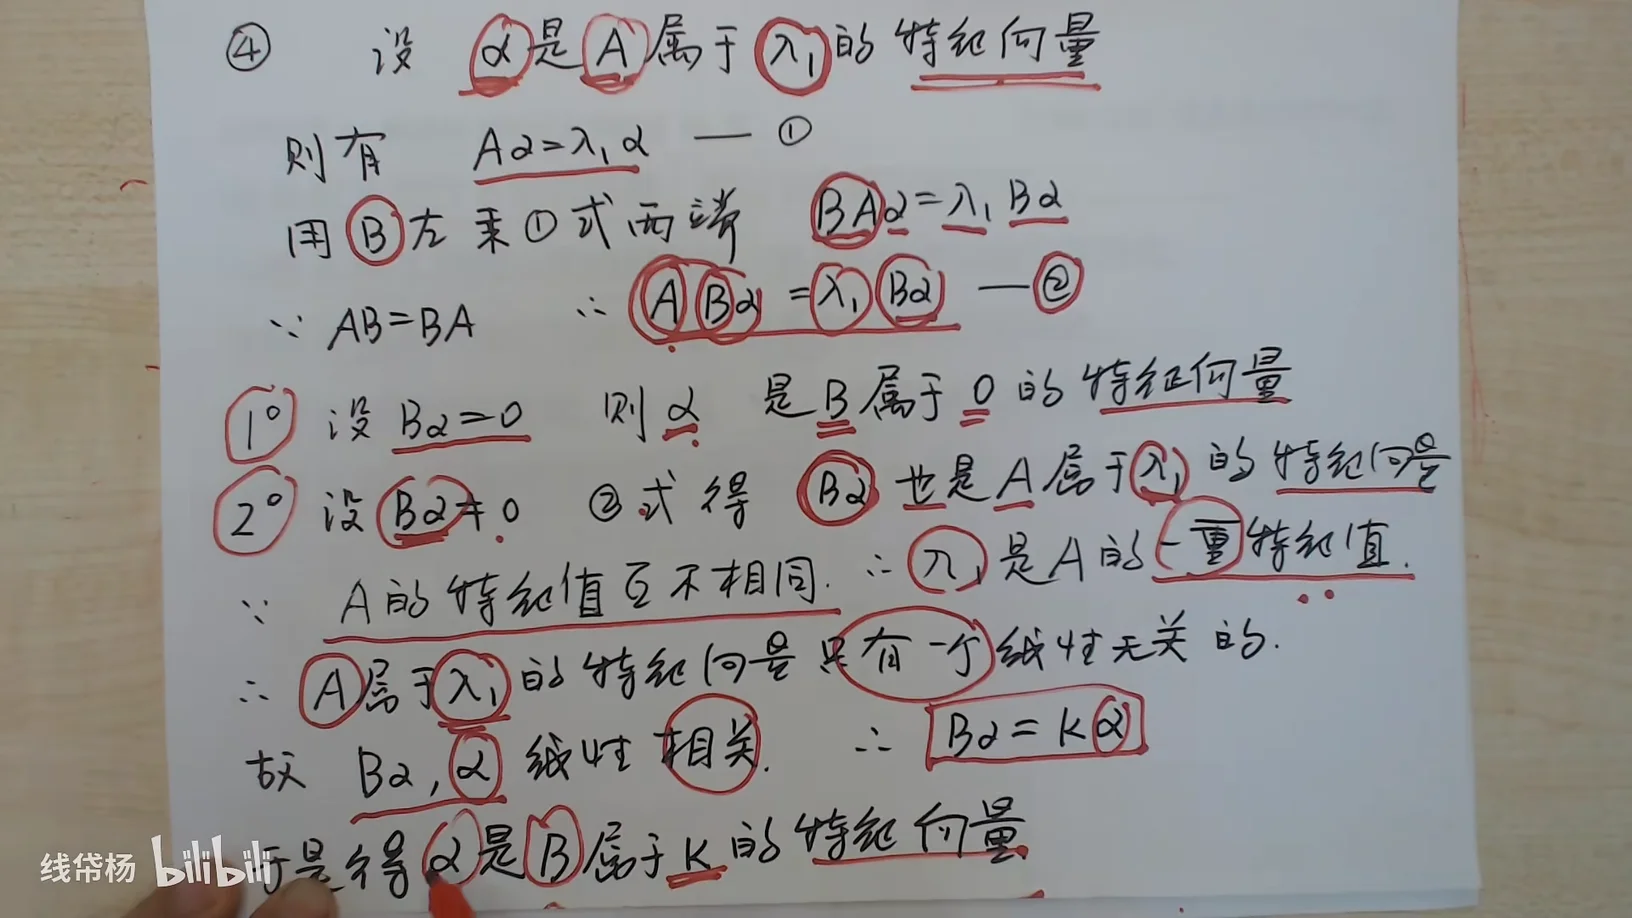 ④ 设 α是A属于λ₁的特征向量
则有 Aα=λ₁α —— ①
用B左乘①式两端 BAα=λ₁Bα
∵ AB=BA ∴ ABα=λ₁Bα — ②
1° 设 Bα=0 则α 是B属于0的特征向量
2° 设Bα≠0 ②式得 Bα也是A属于λ₁的特征向量
∵ A的特征值互不相同. ∴ λ₁是A的一重特征值.
∴ A属于λ₁的特征向量只有一个线性无关的.
故 Bα, α 线性相关. ∴ Bα=Kα
于是得α是B属于K的特征向量
线帒杨 bilibili